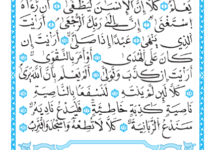 يَعْلَمْ ۝ كَلَّا إِنَّ الْإِنسَٰنَ لَيَطْغَىٰ ۝ أَن رَّءَاهُ
اسْتَغْنَىٰ ۝ إِنَّ إِلَىٰ رَبِّكَ الرُّجْعَىٰ ۝ أَرَءَيْتَ
الَّذِي يَنْهَىٰ ۝ عَبْدًا إِذَا صَلَّىٰ ۝ أَرَءَيْتَ إِن
كَانَ عَلَى الْهُدَىٰ ۝ أَوْ أَمَرَ بِالتَّقْوَىٰ ۝
أَرَءَيْتَ إِن كَذَّبَ وَتَوَلَّىٰ ۝ أَلَمْ يَعْلَم بِأَنَّ اللَّهَ يَرَىٰ
۝ كَلَّا لَئِن لَّمْ يَنتَهِ لَنَسْفَعًا بِالنَّاصِيَةِ ۝
نَاصِيَةٍ كَٰذِبَةٍ خَاطِئَةٍ ۝ فَلْيَدْعُ نَادِيَهُ ۝
سَنَدْعُ الزَّبَانِيَةَ ۝ كَلَّا لَا تُطِعْهُ وَاسْجُدْ وَاقْتَرِب